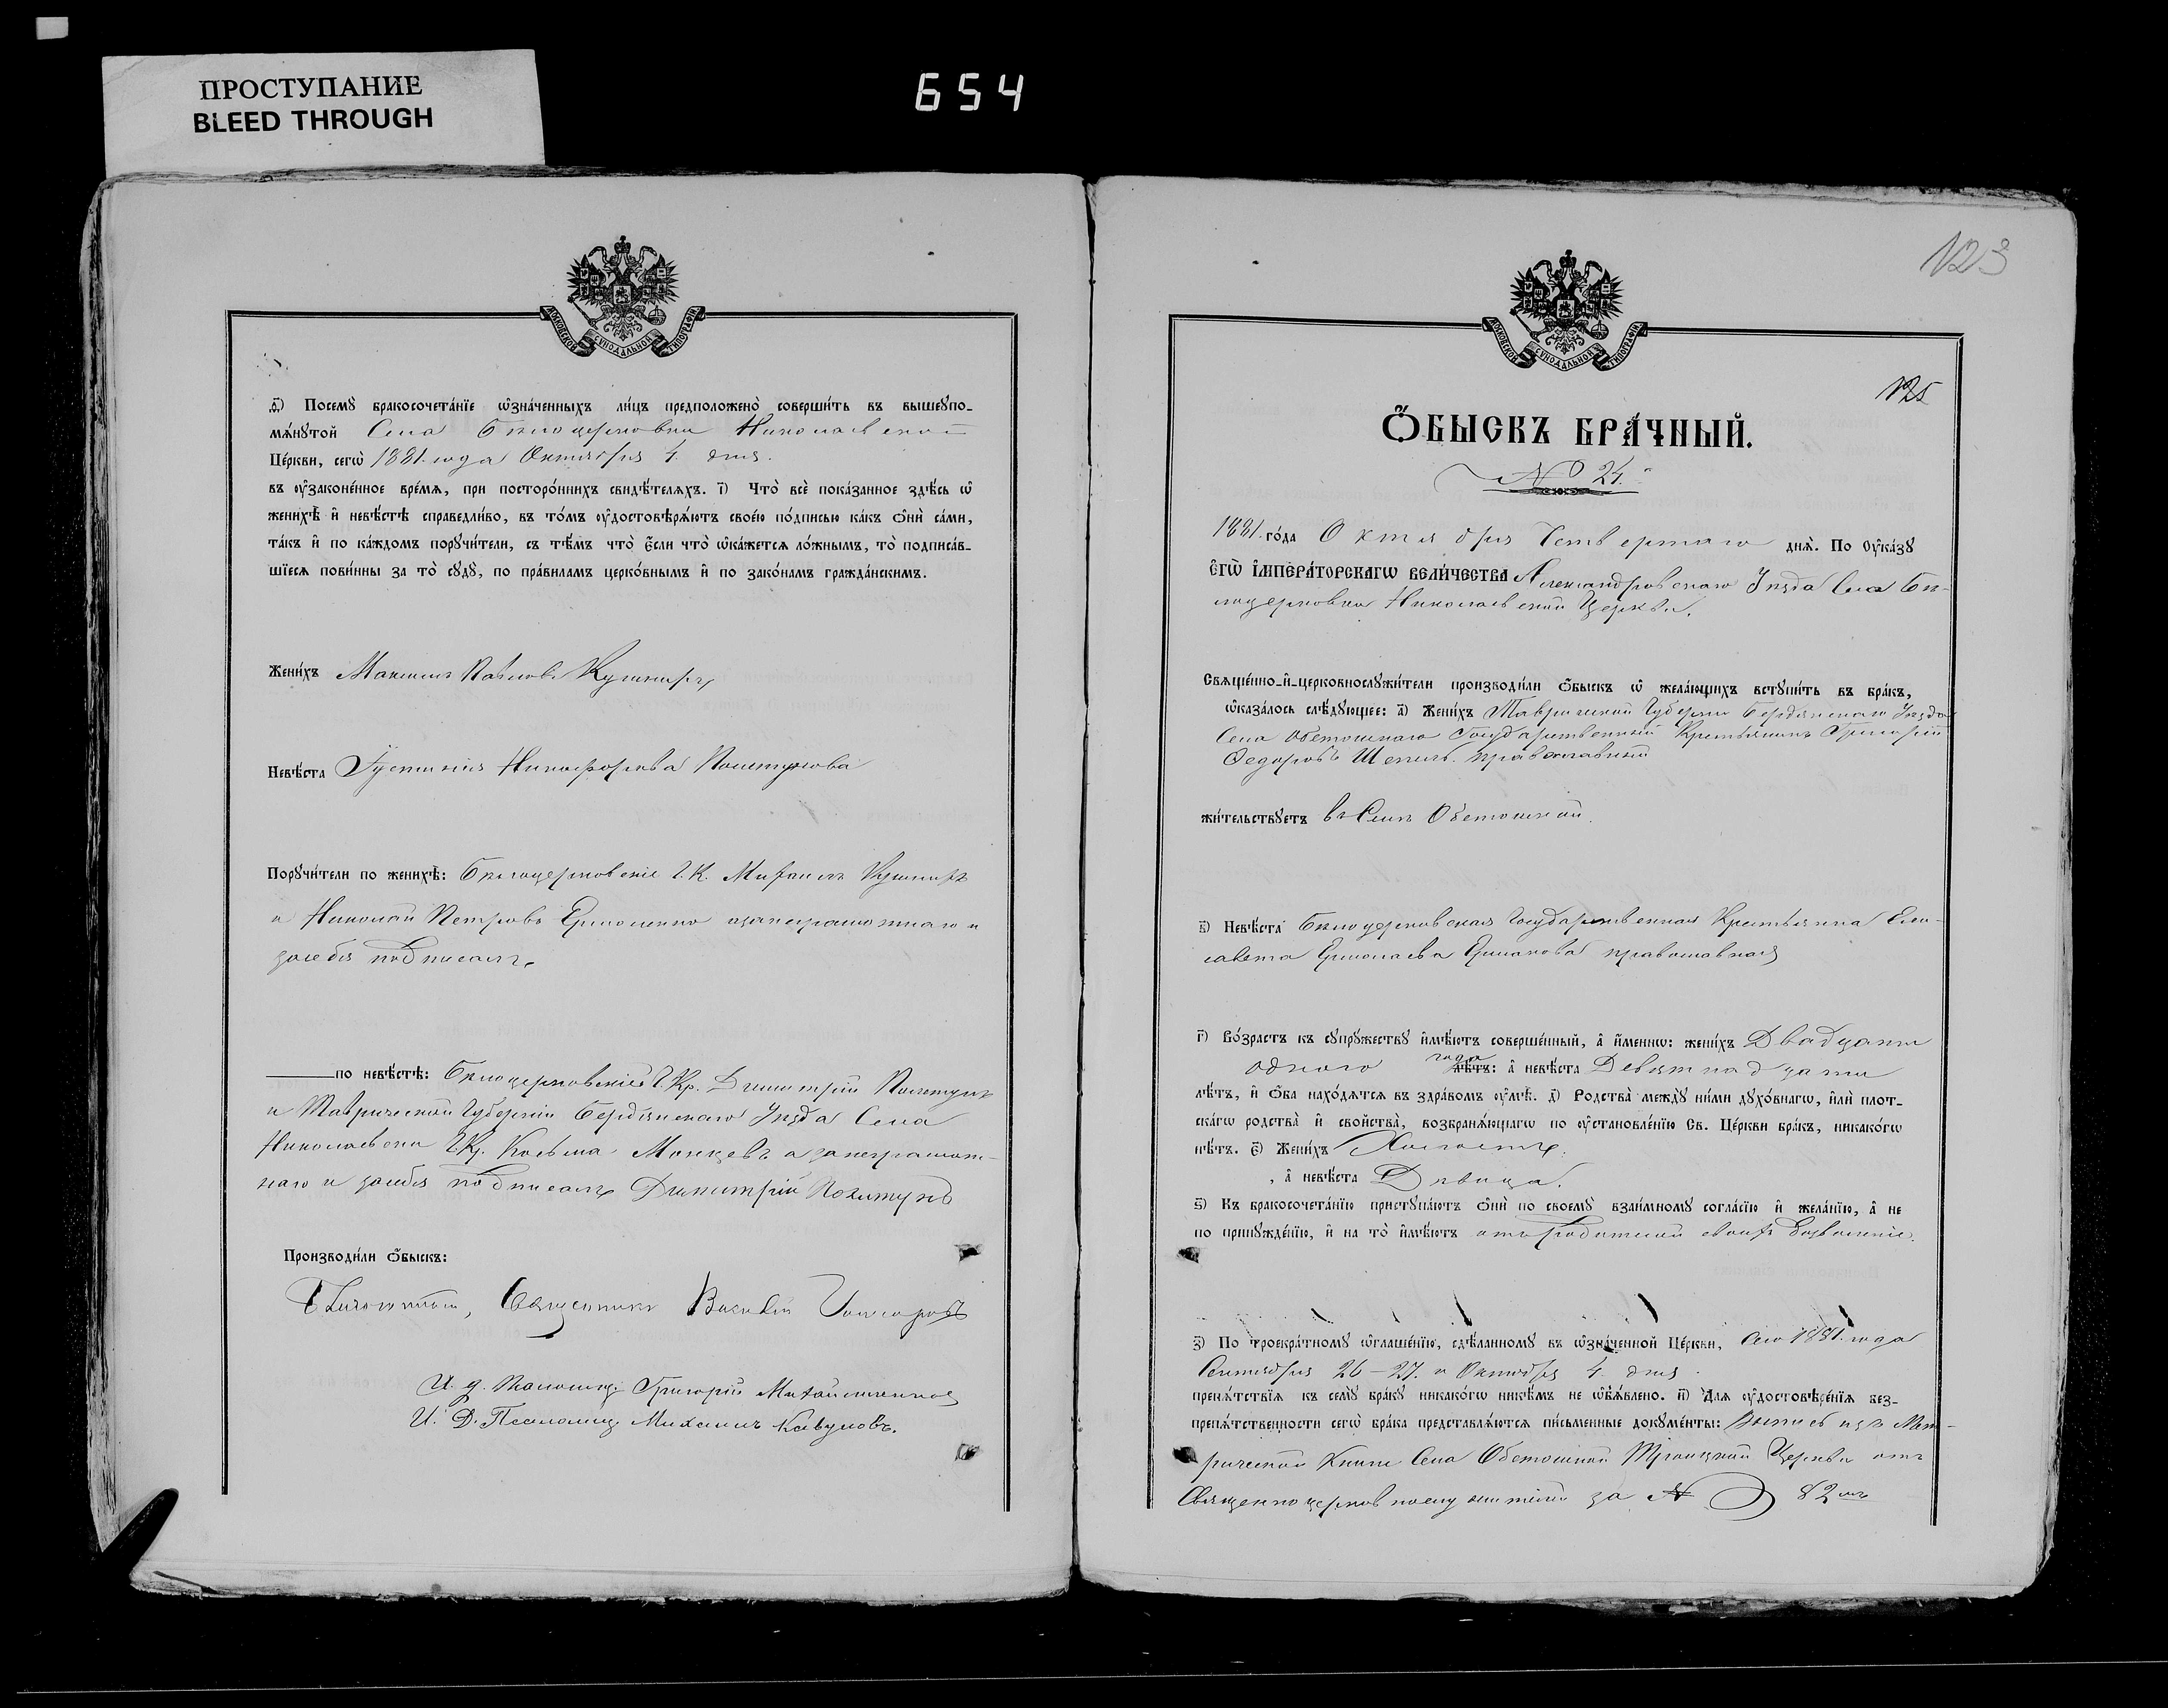 ПРОСТУПАНИЕ
BLEED THROUGH
654
МОСКОВСКОЙ СѴНОДАЛЬНОЙ ТИПОГРАФІИ
ѳ҃) Посемꙋ бракосочета́нїе ѡ҆зна́ченныхъ ли́цъ предположено̀ соверши́ть въ вышеꙋпо-
мѧ́нꙋтой Села Бѣлоцерковки Николаевской
Це́ркви, сегѡ̀ 1881 года Октября 4. дня.
въ ᲂу҆законе́нное вре́мѧ, при посторо́ннихъ свидѣ́телѧхъ. і҃) Что̀ всѐ пока́занное здѣ́сь ѡ҆
женихѣ̀ и҆ невѣ́стѣ справедли́во, въ то́мъ ᲂу҆достовѣрѧ́ютъ свое́ю по́дписью ка́къ ѻ҆нѝ са́ми,
та́къ и҆ по ка́ждомъ порꙋчи́тели, съ тѣ́мъ что̀ є҆́сли что̀ ѡ҆ка́жетсѧ ло́жнымъ, то̀ подписа́в-
шїесѧ пови́нны за то̀ сꙋдꙋ̀, по пра́виламъ церко́внымъ и҆ по зако́намъ гражда́нскимъ.
Жени́хъ Максимъ Павловъ Кушниръ
Невѣ́ста Іустинія Никифорова Полтухова
Порꙋчи́тели по женихѣ̀: Бѣлоцерковскіе Г.К. Михаилъ Кушниръ
и Николай Петровъ Ермоленко а за неграмотнаго и
за себя подписалъ
по невѣ́стѣ: Бѣлоцерковскій Г.Кр. Димитрій
и Таврической Губерніи Бердянскаго Уѣзда Села
Николаевки Г.Кр. Косьма а за неграмот-
наго и за себя подписалъ Димитрій
Производи́ли ѻ҆́быскъ:
Священникъ Василій
И. д. Псаломщ. Григорій Михайличенко
И. Д. Псаломщ Михаилъ Кавуновъ.
123
125
Ѻ҆́БЫСКЪ БРА́ЧНЫЙ.
№ 24.
1881 го́да Октября Четвертаго днѧ̀. По ᲂу҆ка́зꙋ
Е҆ГѠ̀ И҆МПЕРА́ТОРСКАГѠ ВЕЛИ́ЧЕСТВА Александровскаго Уѣзда Села Бѣ-
лоцерковки Николаевской Церкви.
Свѧще́нно-и҆-церковнослꙋжи́тели производи́ли ѻ҆́быскъ ѡ҆ жела́ющихъ встꙋпи́ть въ бра́къ,
ѡ҆каза́лось слѣ́дꙋющее: а҃) Жени́хъ Таврической Губерніи Бердянскаго Уѣзда
Села Обеточнаго Государственный Крестьянинъ Григорій
Федоровъ православный
жи́тельствꙋетъ въ Селѣ Обеточной.
в҃) Невѣ́ста Бѣлоцерковская Государственная Крестьянка Ели-
савета Ермолаева Ермакова православная
г҃) Во́зрастъ къ сꙋпрꙋ́жествꙋ и҆мѣ́ютъ соверше́нный, а҆ и҆́меннѡ: жени́хъ Двадцати
одного года лѣ́тъ: а҆ невѣ́ста Девятнадцати
лѣ́тъ, и҆ ѻ҆́ба нахо́дѧтсѧ въ здра́вомъ ᲂу҆мѣ̀. д҃) Родства̀ междꙋ̀ ни́ми дꙋхо́внагѡ, и҆лѝ плот-
ска́гѡ родства̀ и҆ сво́йства̀, возбранѧ́ющагѡ по ᲂу҆становле́нїю Св. Це́ркви бра́къ, никако́гѡ
нѣ́тъ. є҃) Жени́хъ Холостъ,
, а҆ невѣ́ста Дѣвица.
ѕ҃) Къ бракосочета́нїю пристꙋпа́ютъ ѻ҆нѝ по своемꙋ̀ взаи́мномꙋ согла́сїю и҆ жела́нїю, а҆ не
по принꙋжде́нїю, и҆ на то̀ и҆мѣ́ютъ отъ родителей своихъ дозволеніе.
з҃) По троекра́тномꙋ ѡ҆глаше́нїю, сдѣ́ланномꙋ въ ѡ҆зна́ченной Це́ркви, сего 1881 года
Сентября 26-27. и Октября 4. дня.
препѧ́тствїѧ къ семꙋ̀ бра́кꙋ никако́гѡ никѣ́мъ не ѡ҆б̾ѧ́влено. и҃) Длѧ ᲂу҆достовѣре́нїѧ без-
препѧ́тственности сегѡ̀ бра́ка представлѧ́ютсѧ пи́сьменные докꙋме́нты: Выпись изъ Мет-
рической Книги Села Обеточной Троицкой Церкви отъ
Священноцерковнослужителей за № 82мъ